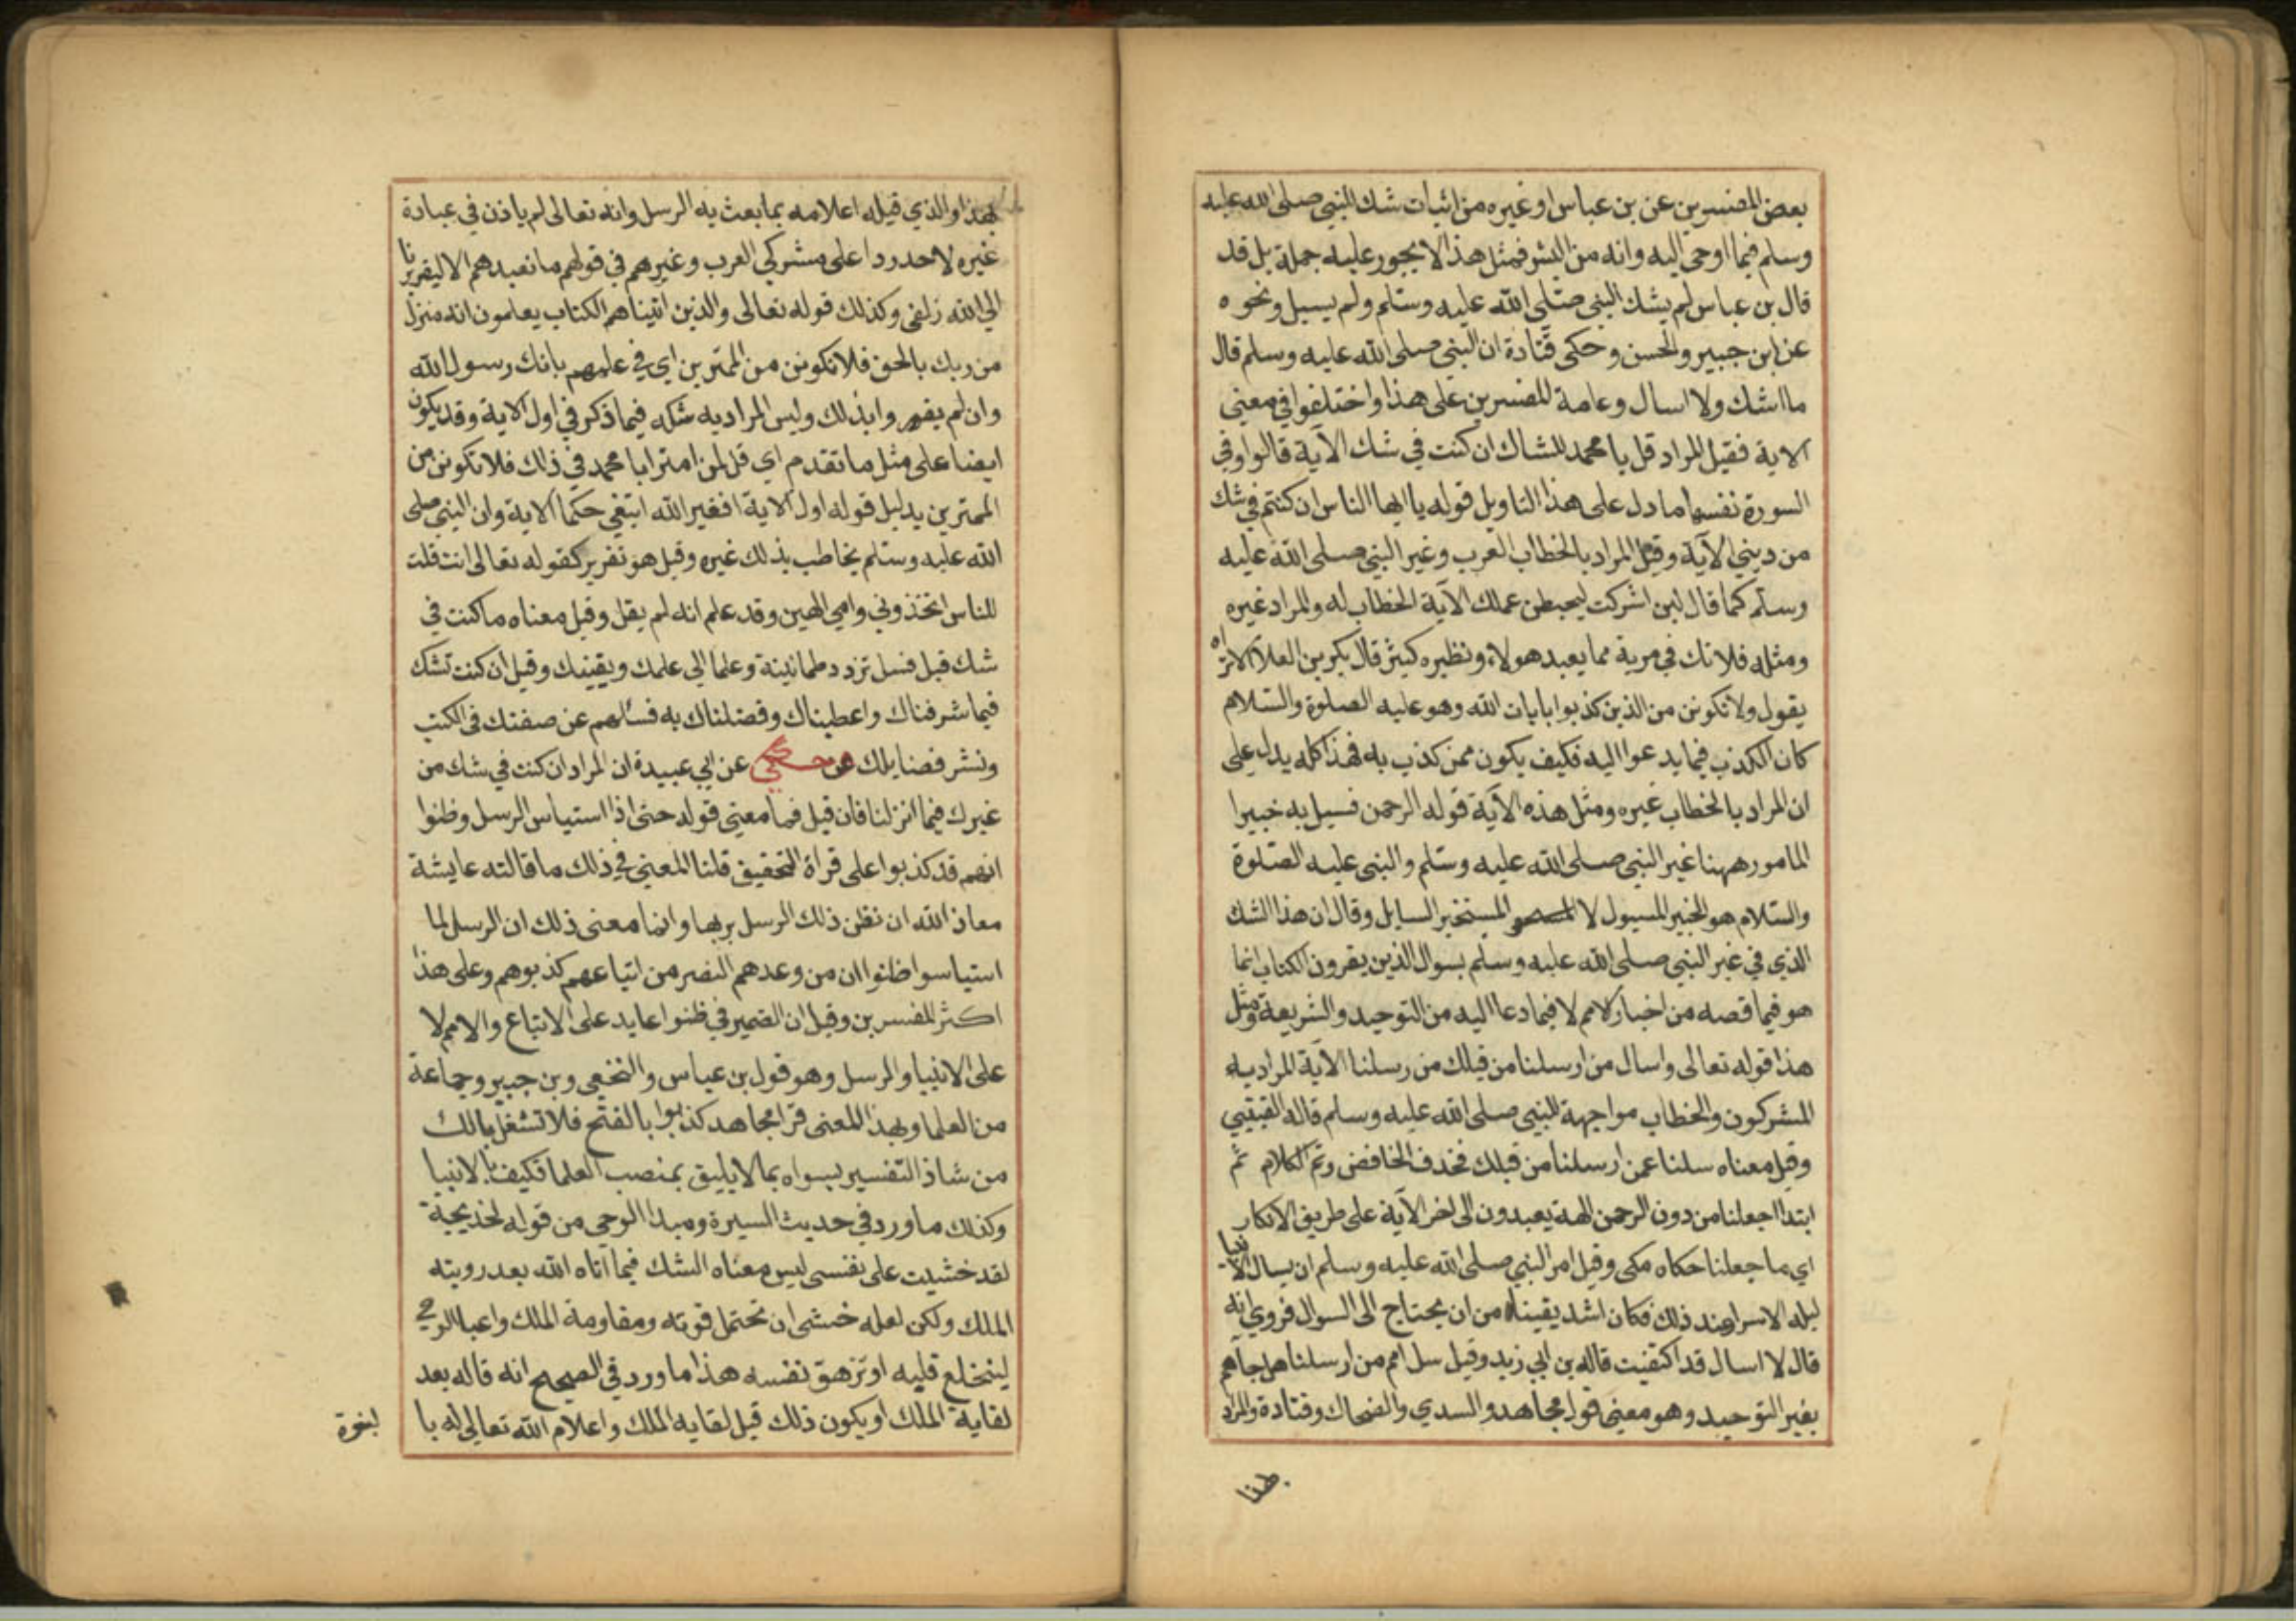 بعض المفسرين عن بن عباس او غيره من اثبات شك النبي صلى الله عليه
وسلم فيما اوحى اليه وانه من البشر فمثل هذا لا يجوز عليه جملة بل قد
قال بن عباس لم يشك النبي صلى الله عليه وسلم ولم يسيل ونحوه
عن ابن جبير والحسن وحكى قتادة ان النبي صلى الله عليه وسلم قال
ما اشك ولا اسال وعامة المفسرين على هذا واختلفوا في معنى
الاية فقيل المراد قل يا محمد للشاك ان كنت في شك الآية قالوا وفي
السورة نفسها ما دل على هذا التاويل قوله يا ايها الناس ان كنتم في شك
من ديني الآية وقيل المراد بالخطاب العرب وغير النبي صلى الله عليه
وسلم كما قال لين اشركت ليحبطن عملك الآية الخطاب له والمراد غيره
ومثله فلا تك في مرية مما يعبد هولاء ونظيره كثير قال بكر بن العلا الا تراه
يقول ولا تكونن من الذين كذبوا بايات الله وهو عليه الصلوة والسلام
كان المكذب فيما يدعوا اليه فكيف يكون ممن كذب به فهذا كله يدل على
ان المراد بالخطاب غيره ومثل هذه الآية قوله الرحمن فسيل به خبيرا
المامور ههنا غير النبي صلى الله عليه وسلم والنبي عليه الصلوة
والسلام هو الخبير المسيول لا المستخبر السايل وقال ان هذا الشك
الذي في غير النبي صلى الله عليه وسلم بسوال الذين يقرون الكتاب انما
هو فيما قصه من اخبار الامم لا فيما دعا اليه من التوحيد والشريعة ومثل
هذا قوله تعالى واسال من ارسلنا من قبلك من رسلنا الآية المراد به
المشركون والخطاب مواجهة للنبي صلى الله عليه وسلم قاله القتيبي
وقيل معناه سلنا عمن ارسلنا من قبلك فحذف الخافض وتم الكلام ثم
ابتدا اجعلنا من دون الرحمن الهة يعبدون الى اخر الآية على طريق الانكار
اي ما جعلنا حكاه مكى وقيل امر النبي صلى الله عليه وسلم ان يسال الانبيا
ليلة الاسرا عند ذلك فكان اشد يقينا من ان يحتاج الى السوال فروي انه
قال لا اسال قد اكتفيت قاله بن ابي زيد وقيل سل امم من ارسلنا هل جآهم
بغير التوحيد وهو معنى قول مجاهد والسدي والضحاك وقتادة والمراد
بهذا والذي قبله اعلامه بما بعث به الرسل وانه تعالى لم ياذن في عبادة
غيره لاحد ردا على مشركي العرب وغيرهم في قولهم ما نعبدهم الا ليقربونا
الى الله زلفى وكذلك قوله تعالى والذين آتيناهم الكتاب يعلمون انه منزل
من ربك بالحق فلا تكونن من الممترين اي في علمهم بانك رسول الله
وان لم يقروا بذلك وليس المراد به شكه فيما ذكر في اول الاية وقد يكون
ايضا على مثل ما تقدم اي قل لمن امترا يا محمد في ذلك فلا تكونن من
الممترين بدليل قوله اول الاية افغير الله ابتغي حكما الاية وان النبي صلى
الله عليه وسلم يخاطب بذلك غيره وقيل هو تقرير كقوله تعالى انت قلت
للناس اتخذوني وامي الهين وقد علم انه لم يقل وقيل معناه ما كنت في
شك قبل فسل تزدد طمانينة وعلما الى علمك ويقينك وقيل ان كنت تشك
فيما شرفناك واعطيناك وفضلناك به فسالهم عن صفتك في الكتب
ونشر فضايلك حكي عن ابي عبيدة ان المراد ان كنت في شك من
غيرك فيما انزلنا فان قيل فما معنى قوله حتى اذا استياس الرسل وظنوا
انهم قد كذبوا على قراة التخفيف قلنا المعنى في ذلك ما قالته عايشة
معاذ الله ان تظن ذلك الرسل بربها وانما معنى ذلك ان الرسل لما
استياسوا ظنوا ان من وعدهم النصر من اتباعهم كذبوهم وعلى هذا
اكثر المفسرين وقيل ان الضمير في ظنوا عايد على الاتباع والامم لا
على الانبيا والرسل وهو قول بن عباس والنخعي وبن جبير وجماعة
من العلما وبهذا المعنى قرا مجاهد كذبوا بالفتح فلا تشغل بالك
من شاذ التفسير بسواه بما لا يليق بمنصب العلما فكيف بالانبيا
وكذلك ما ورد في حديث السيرة ومبدا الوحي من قوله لخديجة
لقد خشيت على نفسي ليس معناه الشك فيما آتاه الله بعد رويته
الملك ولكن لعله خشى ان تحتمل قوته ومقاومة الملك واعبا الوحي
لينخلع قلبه او تزهق نفسه هذا ما ورد في الصحيح انه قاله بعد
لقاية الملك او يكون ذلك قبل لقايه الملك واعلام الله تعالى له با
لنبوة